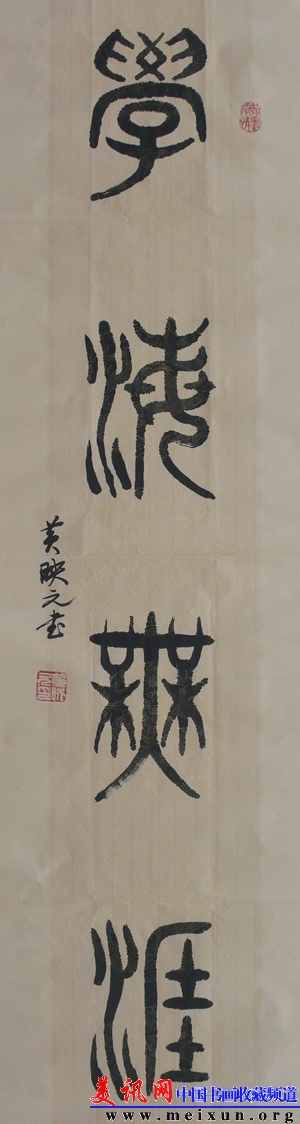 學海無涯
黄映元书
美讯网 中国书画收藏频道
www.meixun.org